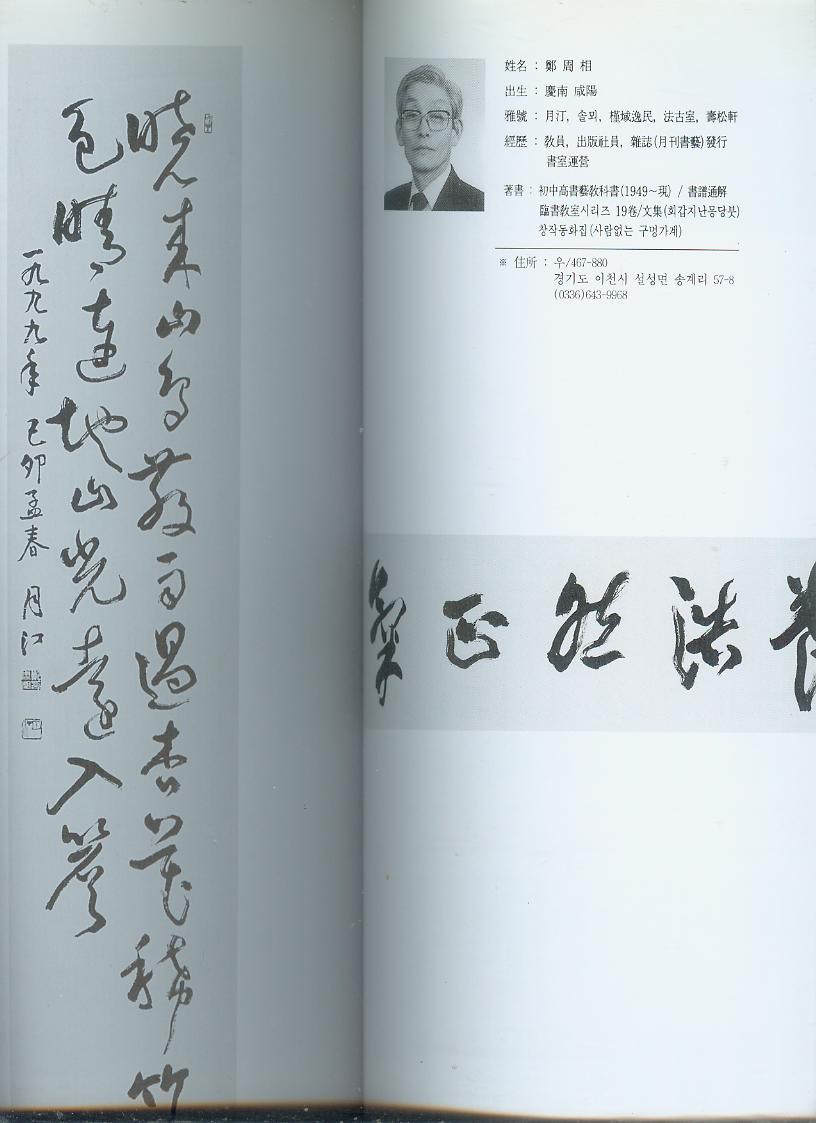 曉来山鳥散雨過杏花稀竹
色晴連地山光遠入簷
一九九九年 己卯孟春 月汀
姓名 : 鄭周相
出生 : 慶南 咸陽
雅號 : 月汀, 솔뫼, 槿域逸民, 法古室, 壽松軒
經歷 : 敎員, 出版社員, 雜誌(月刊書藝)發行
書室運營
著書 : 初中高書藝敎科書(1949~現) / 書譜通解
臨書敎室시리즈 19卷/文集(회갑지난몽당붓)
창작동화집(사람없는 구멍가게)
※ 住所 : 우/467-880
경기도 이천시 설성면 송계리 57-8
(0336)643-9968
浩然正